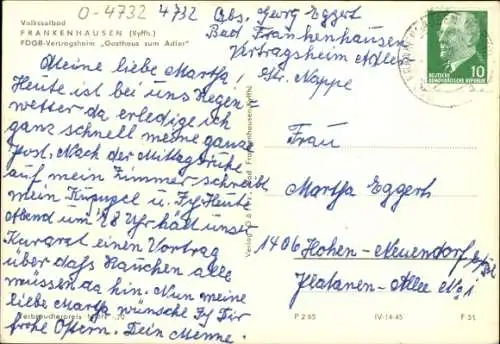 O-4732 4732
Volkssolbad
FRANKENHAUSEN (Kyffh.)
FDGB-Vertragsheim „Gasthaus zum Adler"
Abs. Georg Eggert
Bad Frankenhausen
Vertragsheim Adler
Str. Nappe
DEUTSCHE
DEMOKRATISCHE REPUBLIK
10
Meine liebe Martha!
Heute ist bei uns Regen=
wetter da erledige ich
ganz schnell meine ganze
Post. Nach der Mittagsruhe
auf mein Zimmer schreibe
mein u. Heute
Abend um ½8 Uhr hält unser
Kurarzt einen Vortrag
über dass Rauchen alle
müssen da hin. Nun meine
liebe Martha wünsche Dir
frohe Ostern. Dein Menne.
Frau
Martha Eggert
1406 Hohen-Neuendorf
Platanen-Allee No 1
Bad Frankenhausen (Kyffh)
Verbraucherpreis
P 2 65
IV-14-45
F 35